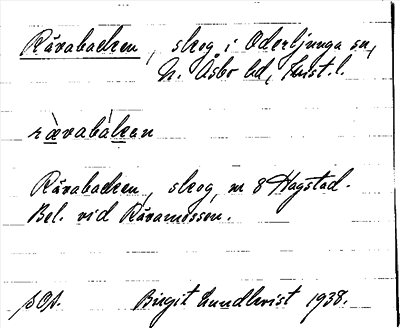 Rävabacken, skog i Oderljunga sn,
N. Åsbo hd, Krist. l.
rävabákan
Rävabacken, skog, nr 8 Hagstad.
Bel. vid Rävamossen.
Birgit Lundkvist 1938.